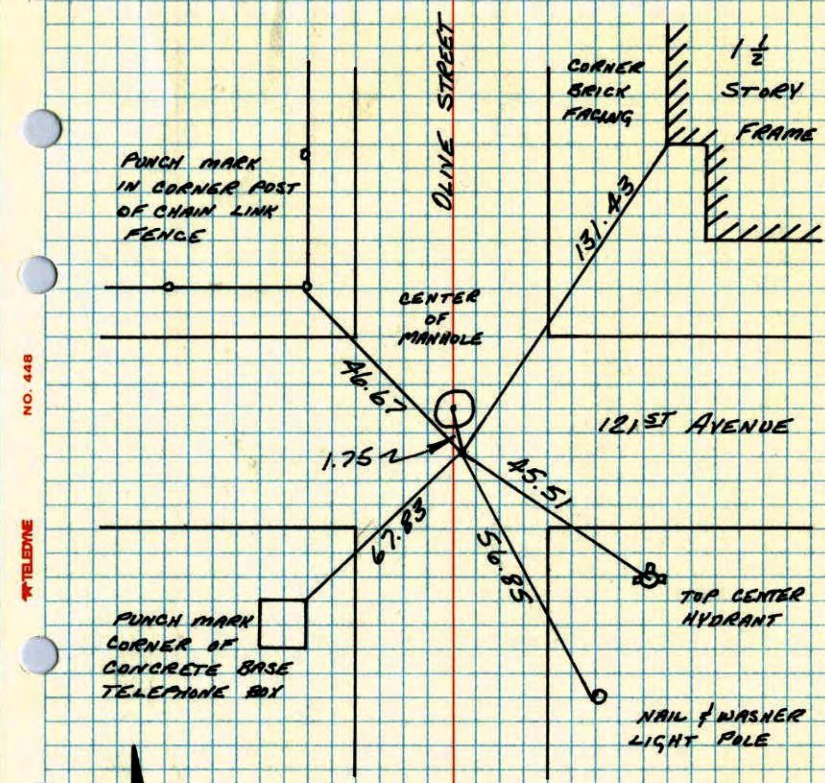 OLIVE STREET
CORNER
BRICK
FACING
1 1/2
STORY
FRAME
PUNCH MARK
IN CORNER POST
OF CHAIN LINK
FENCE
131.43
CENTER
OF
MANHOLE
46.67
NO. 448
121ST AVENUE
1.75
45.51
67.83
56.85
TELEDYNE
TOP CENTER
HYDRANT
PUNCH MARK
CORNER OF
CONCRETE BASE
TELEPHONE BOX
NAIL & WASHER
LIGHT POLE